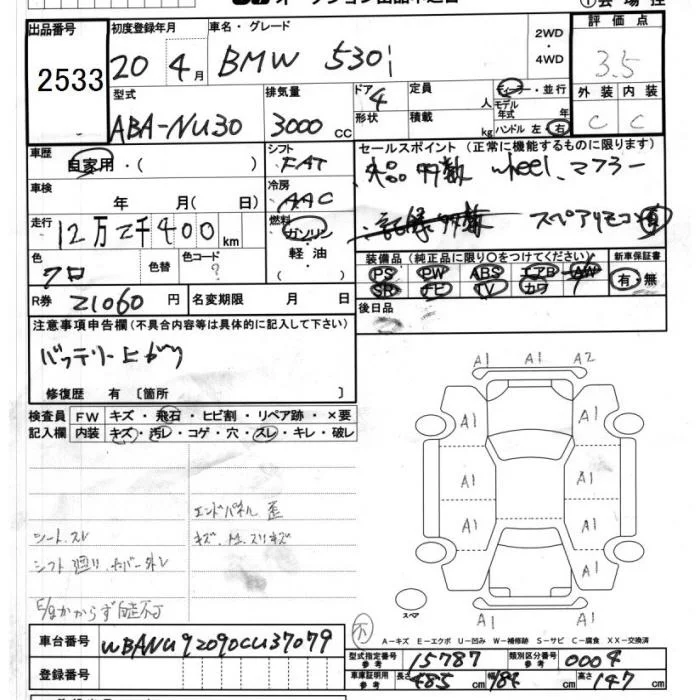 出品番号 2533
初度登録年月 20 4月
車名・グレード BMW 530i
2WD・4WD
評価点 3.5
外装 C 内装 C
型式 ABA-NU30
排気量 3000 CC
ドア 4 形状
定員 人
積載 kg
ディーラー・並行
モデル年式 年
ハンドル 左・右
車歴 自家用・( )
シフト FAT
セールスポイント (正常に機能するものに限ります)
wheel、マフラー
車検 年 月( 日)
冷房 AAC
スペアリモコン有
走行 12万2千400km
燃料 ガソリン・軽油・( )
装備品 (純正品に限り○をつけてください)
新車保証書 有・無
PS PW ABS エアB AW
SR ナビ TV カワ
色 クロ 色替 色コード ?
R券 21060 円 名変期限 月 日
後日品
注意事項申告欄 (不具合内容等は具体的に記入して下さい)
バッテリー上がり
修復歴 有 [箇所 ]
検査員記入欄
FW キズ・飛石・ヒビ割・リペア跡・×要
内装 キズ・汚レ・コゲ・穴・スレ・キレ・破レ
A1 A1 A2
A1 A1
A1 A1
A1 A1
A1 A1
エンドパネル 歪
シート、スレ
スペア
A-キズ E-エクボ U-凹み W-補修跡 S-サビ C-腐食 XX-交換済
車台番号 WBANU92090CU37079
型式指定番号 参考 15787 類別区分番号 参考 0004
登録番号
車庫証明用 参考 長さ 485 cm 幅 184 cm 高さ 147 cm